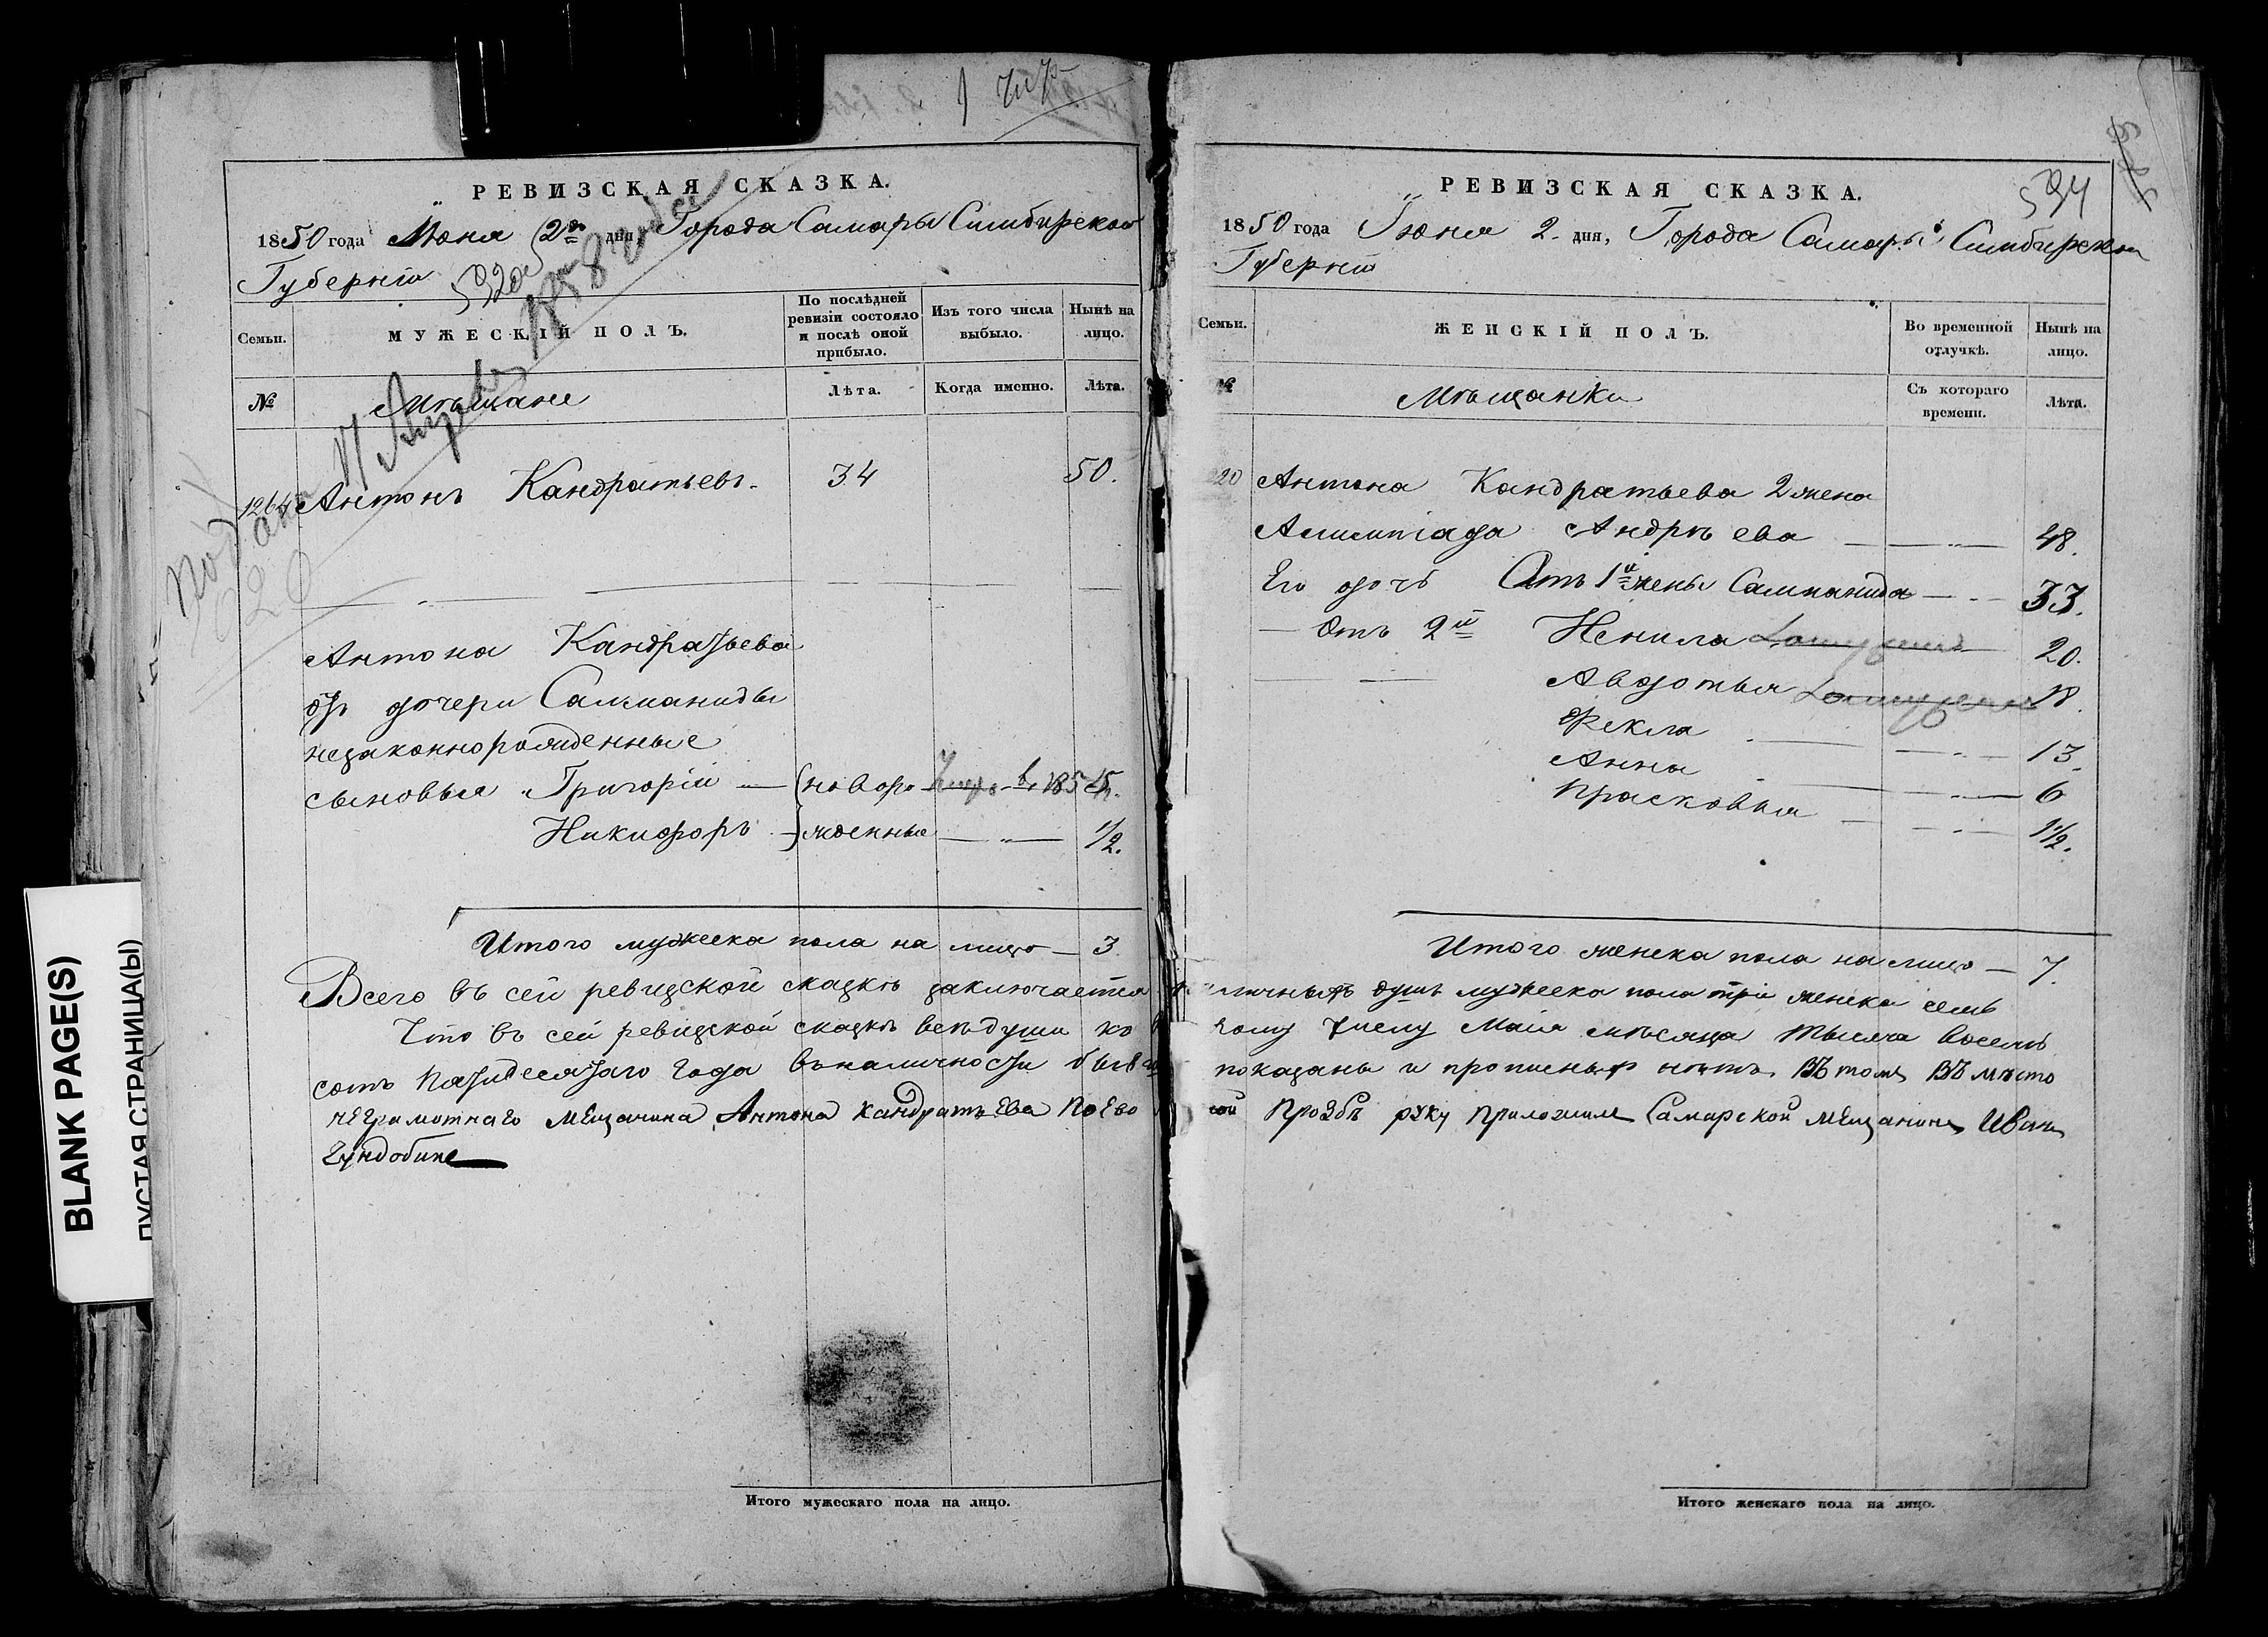 РЕВИЗСКАЯ СКАЗКА.
1850 года Июня 2го дня, Города Самары Симбирской
Губернiи
Семьи.
МУЖЕСКIЙ ПОЛЪ.
По послѣдней
ревизiи состояло
и послѣ оной
прибыло.
Изъ того числа
выбыло.
Нынѣ на
лицо.
№
Мѣщане
Лѣта.
Когда именно.
Лѣта.
1264 Антонъ Кандратьевъ 34 50.
Антона Кандратьева
отъ дочери Саломаниды
незаконнорожденные
сыновья Григорiй — новоро 
Никифоръ — жденные — 1/2.
Итого мужеска пола на лицо — 3
Всего въ сей ревизской сказкѣ заключается
Что въ сей ревизской сказкѣ всѣ души ко
сотъ пятидесятаго года въ наличности бывш
неграмотнаго мещанина Антона Кандратьева По Ево
Гундобине
Итого мужескаго пола на лицо.
594
РЕВИЗСКАЯ СКАЗКА.
1850 года Iюня 2. дня, Города Самары Симбирской
Губернiи
Семьи.
ЖЕНСКIЙ ПОЛЪ.
Во временной
отлучкѣ.
Нынѣ на
лицо.
№
Мѣщанки
Съ котораго
времени.
Лѣта.
220 Антона Кандратьева 2 жена
Алимпiада Андрѣева — 48.
Его дочь Отъ 1й жены Саломанида — 33.
— Отъ 2й Ненила 20.
Авдотья 18.
Фекла — 13.
Анна — 6
Прасковья — 1 1/2.
Итого женска пола на лицо — 7.
личныхъ душъ мужеска пола три женска семь
тому числу Маiя мѣсяца тысяча восемь
показаны и прописныхъ нѣтъ. Въ томъ Въ место
сой Прозбѣ руку приложилъ Самарской мещанинъ Иванъ
Итого женскаго пола на лицо.
BLANK PAGE(S)
ПУСТАЯ СТРАНИЦА(Ы)